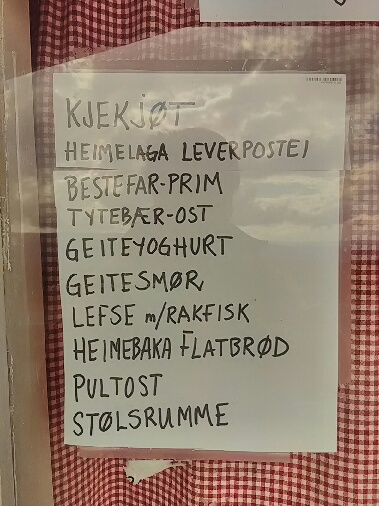 KJEKJØT
HEIMELAGA LEVERPOSTEI
BESTEFAR-PRIM
TYTEBÆR-OST
GEITEYOGHURT
GEITESMØR
LEFSE m/RAKFISK
HEIMEBAKA FLATBRØD
PULTOST
STØLSRUMME